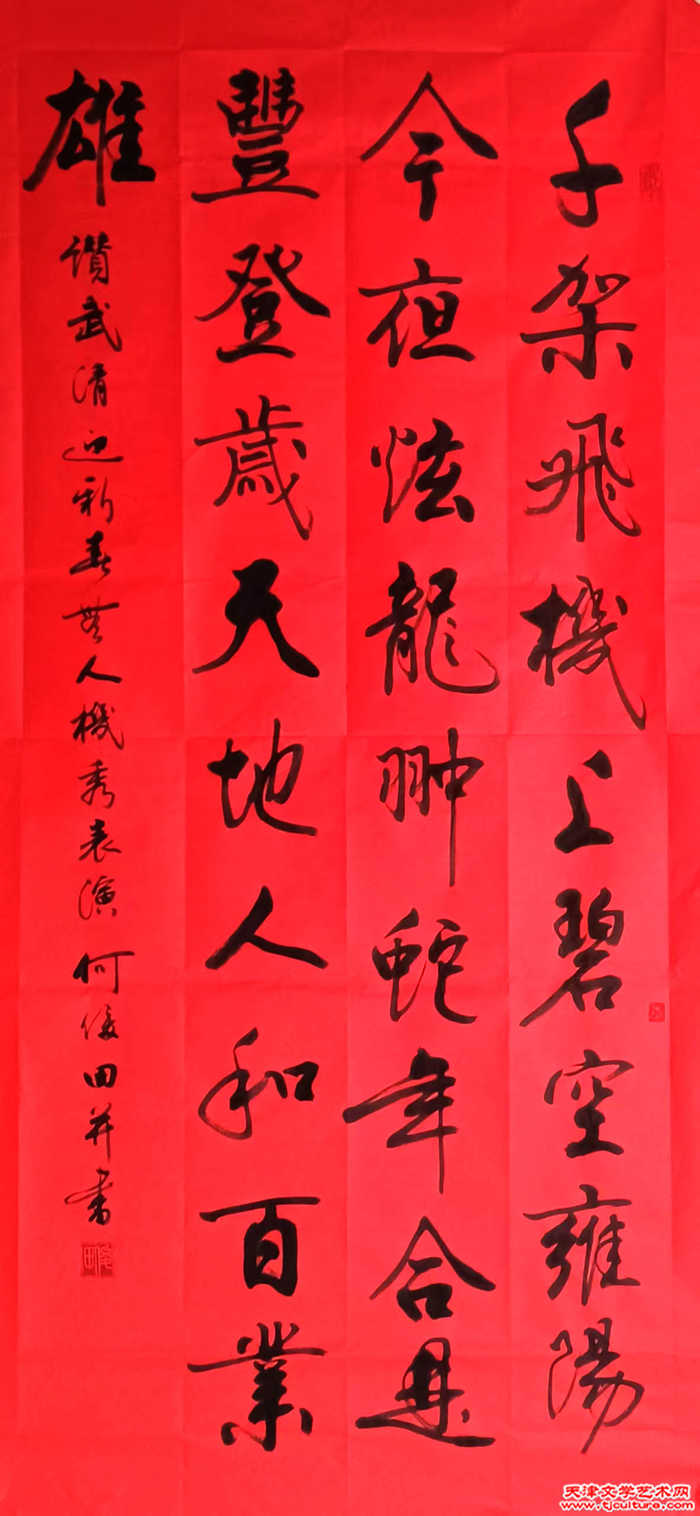 千架飛機上碧空雍陽
今夜炫龍翀蛇年合遇
豐登歲天地人和百業
雄
讚武清迎新春無人機秀表演 何俊田并書
天津文学艺术网
www.tjculture.com